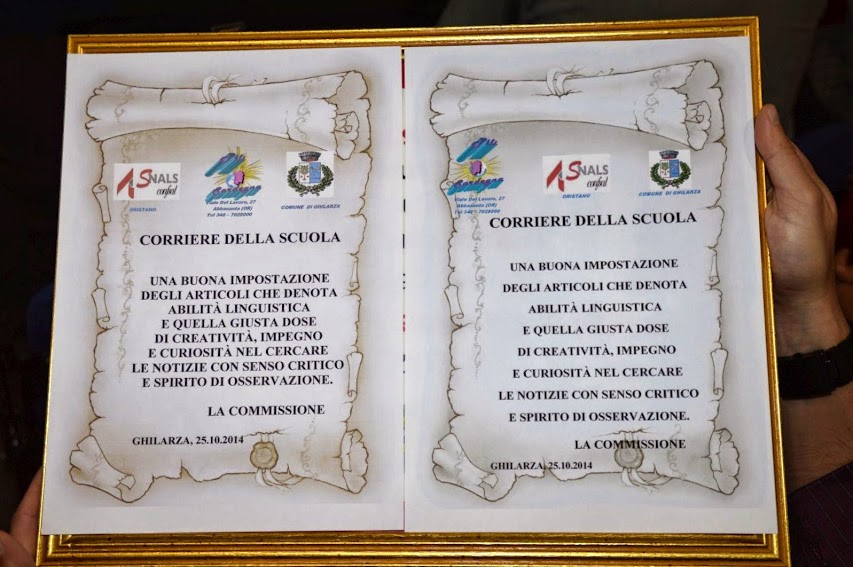 SNALS
confsal
ORISTANO
Sardegna
Viale Del Lavoro, 27
Abbasanta (OR)
Tel 348 - 7028000
COMUNE DI GHILARZA
CORRIERE DELLA SCUOLA
UNA BUONA IMPOSTAZIONE
DEGLI ARTICOLI CHE DENOTA
ABILITÀ LINGUISTICA
E QUELLA GIUSTA DOSE
DI CREATIVITÀ, IMPEGNO
E CURIOSITÀ NEL CERCARE
LE NOTIZIE CON SENSO CRITICO
E SPIRITO DI OSSERVAZIONE.
LA COMMISSIONE
GHILARZA, 25.10.2014
Sardegna
Viale Del Lavoro, 27
Abbasanta (OR)
Tel 348 - 7028000
SNALS
confsal
ORISTANO
COMUNE DI GHILARZA
CORRIERE DELLA SCUOLA
UNA BUONA IMPOSTAZIONE
DEGLI ARTICOLI CHE DENOTA
ABILITÀ LINGUISTICA
E QUELLA GIUSTA DOSE
DI CREATIVITÀ, IMPEGNO
E CURIOSITÀ NEL CERCARE
LE NOTIZIE CON SENSO CRITICO
E SPIRITO DI OSSERVAZIONE.
LA COMMISSIONE
GHILARZA, 25.10.2014